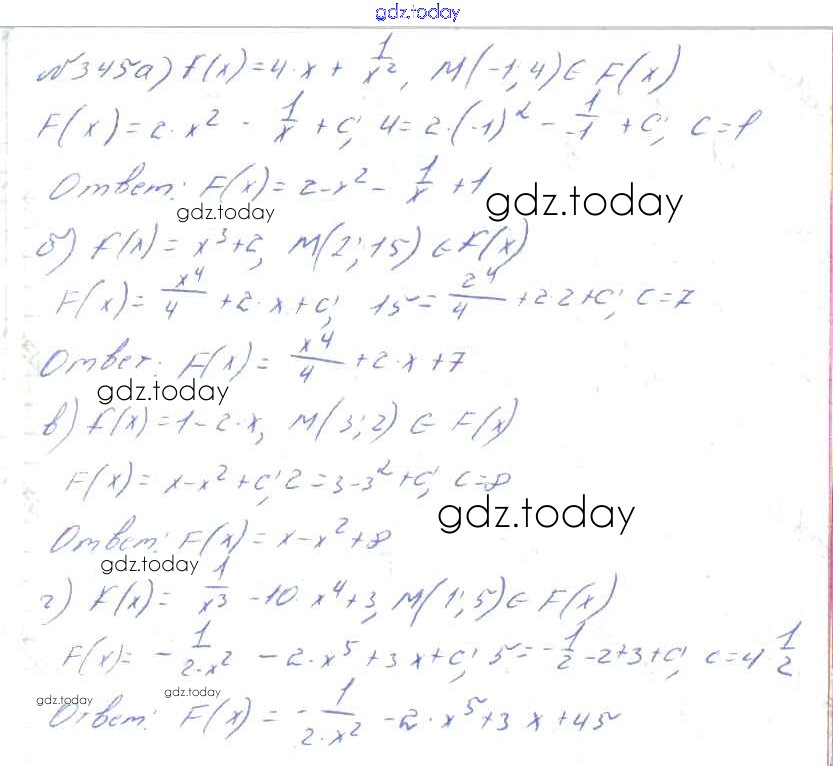 gdz.today
№345 а) f(x)=4·x + 1/x², M(-1;4) ∈ F(x)
F(x)=2·x² - 1/x + C; 4=2·(-1)² - 1/-1 + C; C=1
Ответ: F(x)=2·x² - 1/x +1
gdz.today gdz.today
б) f(x)= x³+2, M(2;15) ∈ F(x)
F(x)= x⁴/4 +2·x+C; 15= 2⁴/4 +2·2+C; C=7
Ответ: F(x)= x⁴/4 +2·x+7
gdz.today
в) f(x)=1-2·x, M(3;2) ∈ F(x)
F(x)= x-x²+C; 2=3-3²+C; C=8
gdz.today
Ответ: F(x)= x-x²+8
gdz.today
г) f(x)= 1/x³ -10·x⁴+3, M(1;5) ∈ F(x)
F(x)= - 1/2·x² -2·x⁵+3x+C; 5=-1/2-2+3+C; C=4 1/2
gdz.today gdz.today
Ответ: F(x)= - 1/2·x² -2·x⁵+3x+45